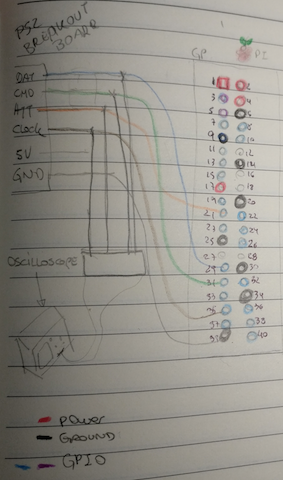 PS2
BREAKOUT
BOARD
GP
PI
DAT
CMD
ATT
CLOCK
5V
GND
OSCILLOSCOPE
1 2
3 4
5 6
7 8
9 10
11 12
13 14
15 16
17 18
19 20
21 22
23 24
25 26
27 28
29 30
31 32
33 34
35 36
37 38
39 40
POWER
GROUND
GPIO